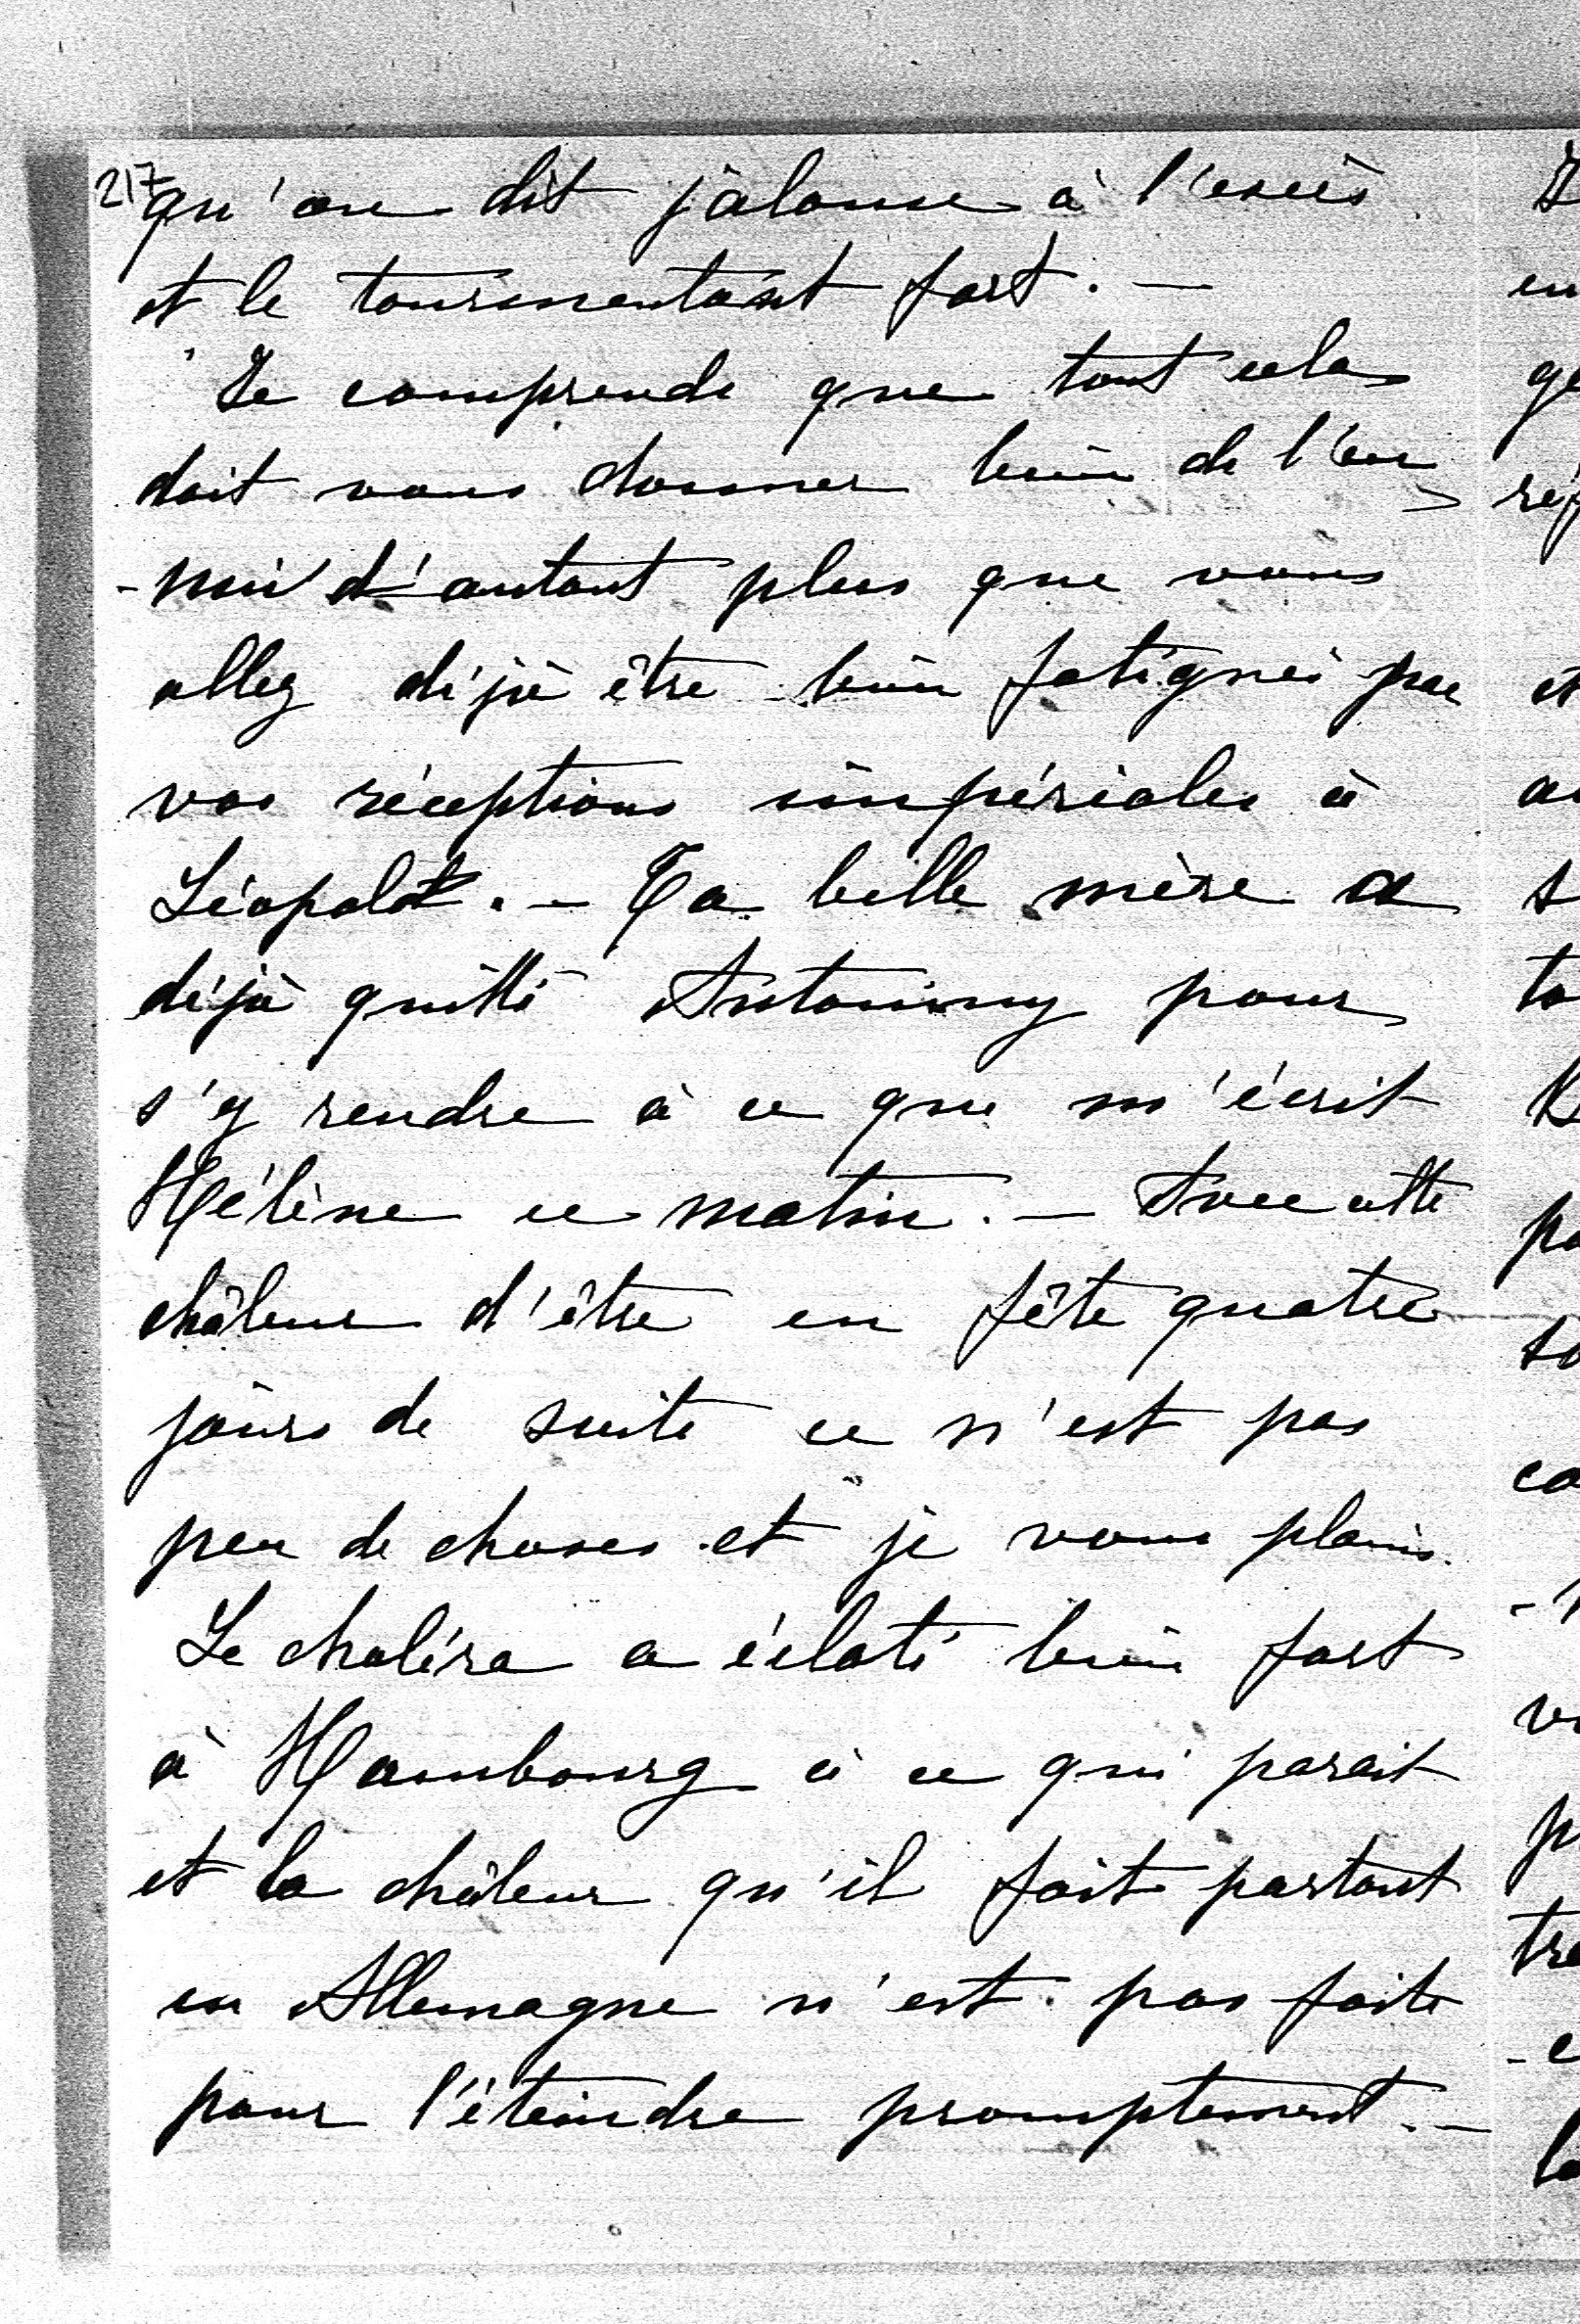 217
qu'on dit jalouse à l'excès
et le tourmentant fort. —
Je comprends que tout cela
doit vous donner bien de l'en
-nui d'autant plus que vous
allez déjà être bien fatigués par
vos réceptions impériales à
Léopold. — Ta belle mère a
déjà quitté Antoniny pour
s'y rendre à ce que m'écrit
Hélène ce matin. — Avec cette
châleur d'être en fête quatre
jours de suite ce n'est pas
peu de choses et je vous plains.
Le choléra a éclaté bien fort
à Hambourg à ce qui parait
et la châleur qu'il fait partout
en Allemagne n'est pas faite
pour l'éteindre promptement. —